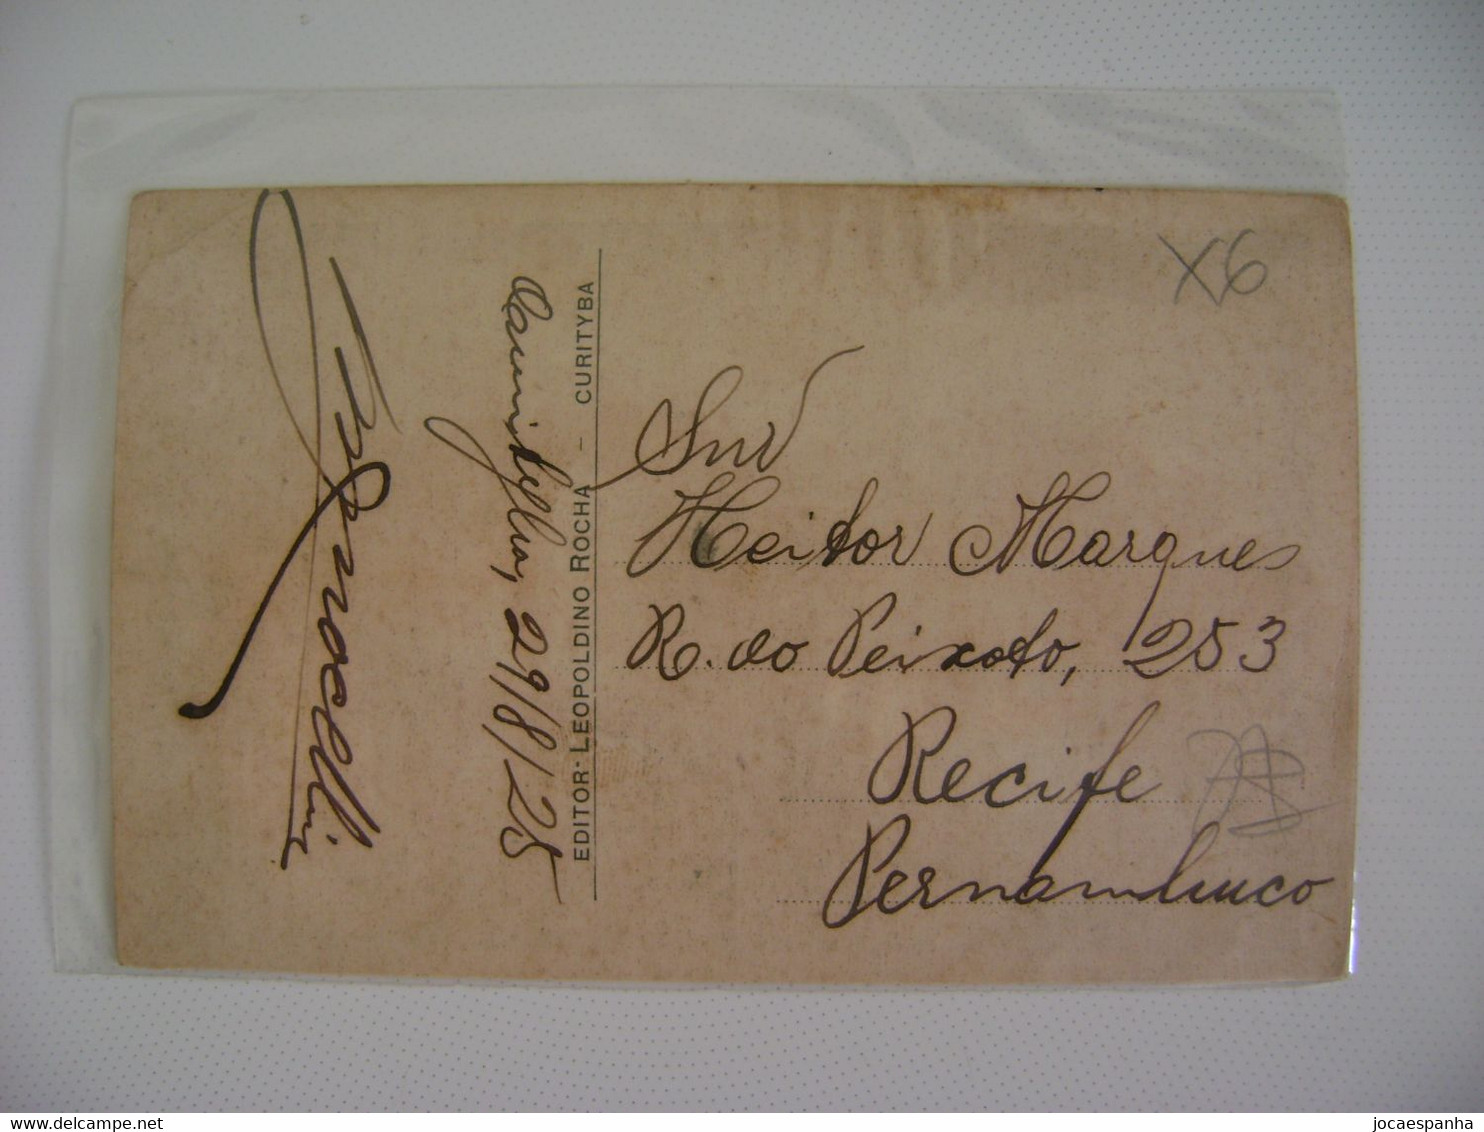 X6
Snr
Heitor Marques
R. do Peixoto, 253
Recife
Pernambuco
EDITOR-LEOPOLDINO ROCHA – CURITYBA
29/8/25
delcampe.net
jocaespanha